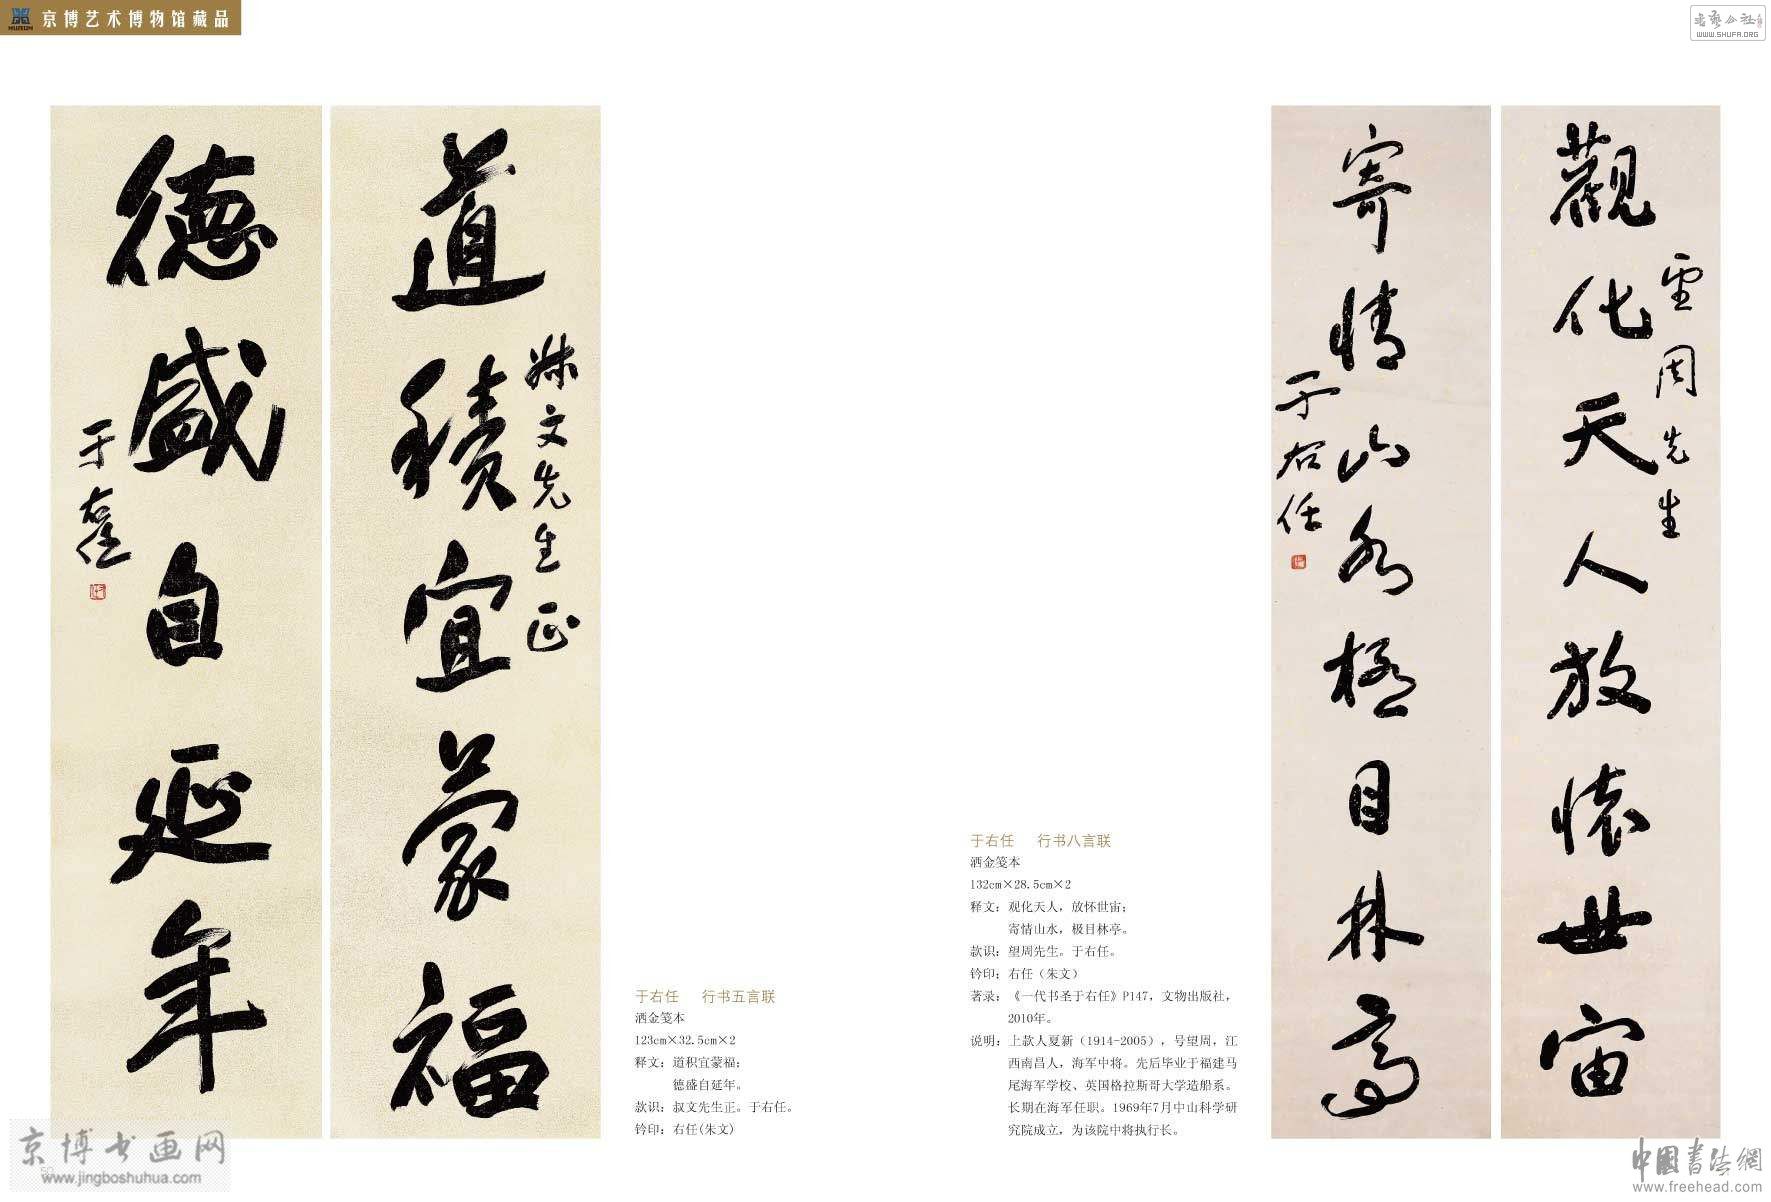 京博艺术博物馆藏品
WWW.SHUFA.ORG
道積宜蒙福
叔文先生正
德盛自延年
于右任
觀化天人放懷世宙
望周先生
寄情山水極目林亭
于右任
于右任 行书五言联
洒金笺本
123cm×32.5cm×2
释文：道积宜蒙福；
德盛自延年。
款识：叔文先生正。于右任。
钤印：右任(朱文)
于右任 行书八言联
洒金笺本
132cm×28.5cm×2
释文：观化天人，放怀世宙；
寄情山水，极目林亭。
款识：望周先生。于右任。
钤印：右任（朱文）
著录：《一代书圣于右任》P147，文物出版社，
2010年。
说明：上款人夏新（1914-2005），号望周，江
西南昌人，海军中将。先后毕业于福建马
尾海军学校、英国格拉斯哥大学造船系。
长期在海军任职。1969年7月中山科学研
究院成立，为该院中将执行长。
京博书画网
www.jingboshuhua.com
中國書法網
www.freehead.com